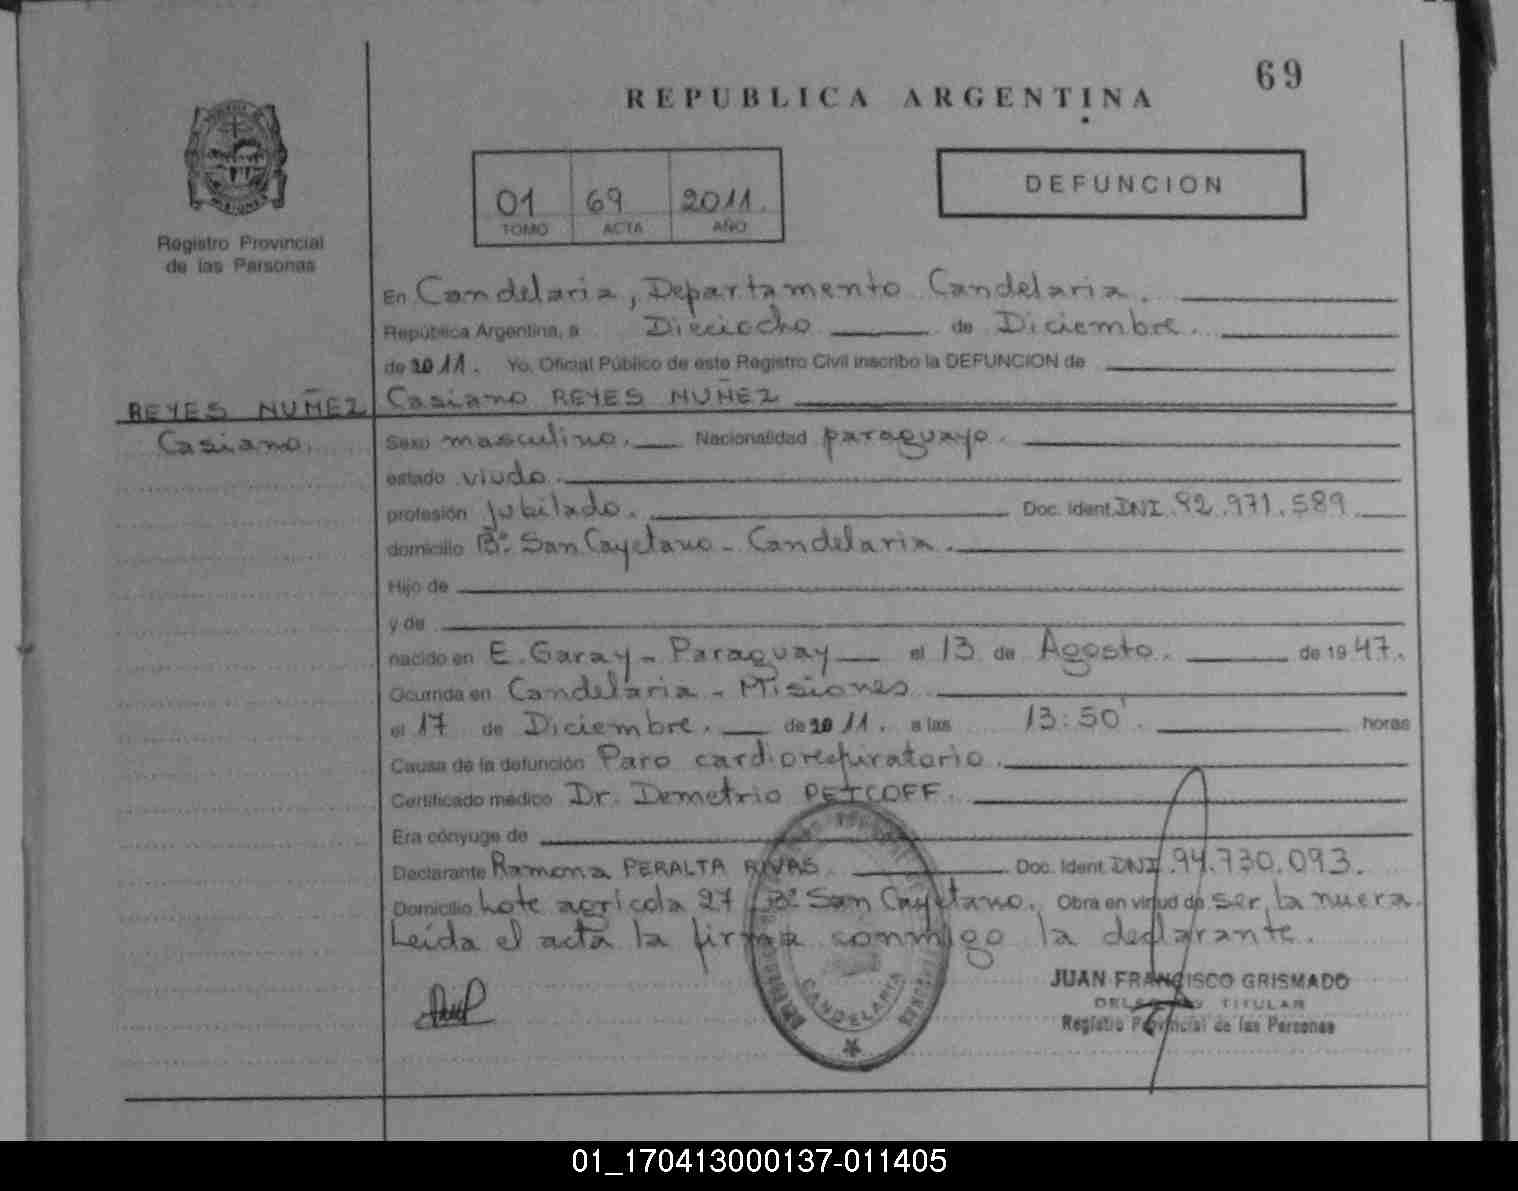 69
REPUBLICA ARGENTINA
01 69 2011.
TOMO ACTA AÑO
DEFUNCION
Registro Provincial
de las Personas
En Candelaria, Departamento Candelaria.
República Argentina, a Dieciocho de Diciembre.
de 2011. Yo, Oficial Público de este Registro Civil inscribo la DEFUNCION de
REYES NUÑEZ Casiano REYES NUÑEZ
Casiano. Sexo masculino. Nacionalidad paraguayo.
estado viudo.
profesión jubilado. Doc. Ident. DNI. 92.971.589
domicilio Bº San Cayetano - Candelaria.
Hijo de
y de
nacido en E. Garay - Paraguay el 13 de Agosto. de 1947.
Ocurrida en Candelaria - Misiones
el 17 de Diciembre. de 2011. a las 13:50'. horas
Causa de la defunción Paro cardiorespiratorio.
Certificado médico Dr. Demetrio PETCOFF.
Era cónyuge de
Declarante Ramona PERALTA RIVAS. Doc. Ident. DNI. 94.730.093.
Domicilio Lote agricola 27 Bº San Cayetano. Obra en virtud de ser la nuera.
Leída el acta la firma conmigo la declarante.
CANDELARIA
JUAN FRANCISCO GRISMADO
DELEGADO TITULAR
Registro Provincial de las Personas
01_170413000137-011405